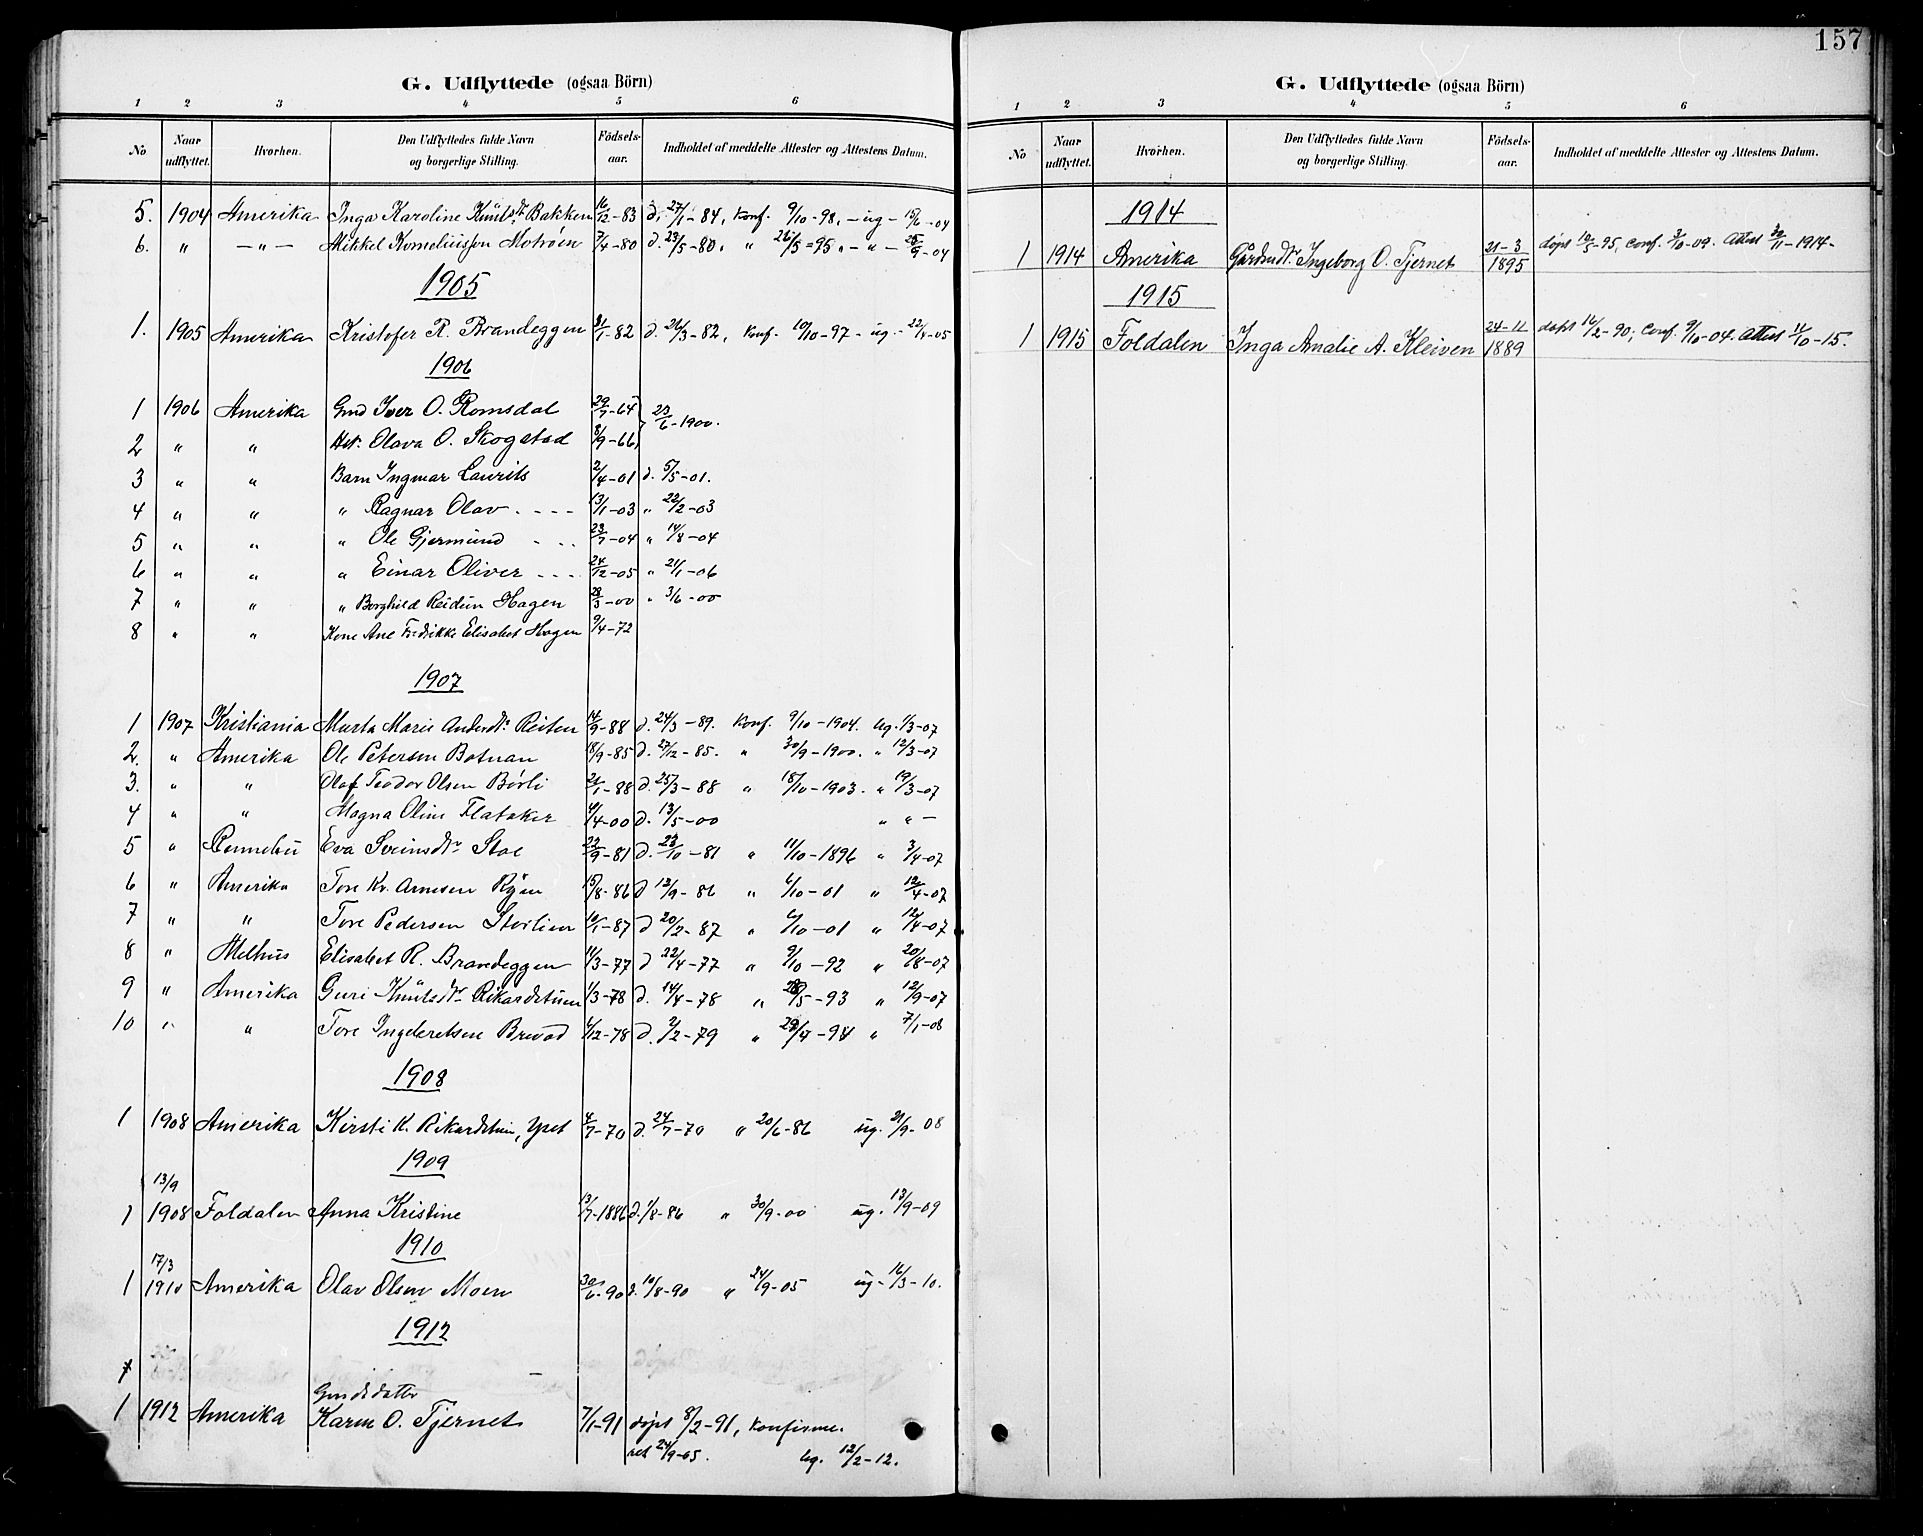 G. Udflyttede (ogsaa Börn)
1 2 3 4 5 6
No Naar udflyttet. Hvorhen. Den Udflyttedes fulde Navn og borgerlige Stilling. Födsels-aar. Indholdet af meddelte Attester og Attestens Datum.
5. 1904 Amerika Inga Karoline Knutsdtr Bakken 16/12-83 d. 27/1-84, Konf. 9/10-98, - ug - 15/6-04
6. " - " - Mikkel Korneliussen Motrøen 7/4-80 d. 23/5-80, " 26/5-95, - " - 25/9-04
1905
1. 1905 Amerika Kristofer R. Brandeggen 31/1-82 d. 26/3-82, Konf. 10/10-97 - ug - 22/4-05
1906
1 1906 Amerika Gmd Iver O. Romsdal 29/7-65 } 23/6-1900.
2 " " Hst. Olava O. Skogstad 8/9-66
3 " " Barn Ingmar Laurits 2/4-01 d. 5/5-01.
4 " " " Ragnar Olav . - - - 13/1-03 " 22/2-03
5 " " " Ole Gjermund - - - 23/7-04 " 14/8-04
6 " " " Einar Oliver - - - 24/12-05 " 21/1-06
7 " " " Borghild Reidun Hagen 28/3-00 " 3/6-00
8 " " Kone Ane Fredrikke Elisabet Hagen 9/4-72
1907
1 1907 Kristiania Marta Marie Andersdtr Reiten 14/9-88 d. 24/3-89. Konf. 9/10-1904. ug. 1/3-07
2. " Amerika Ole Petersen Botnan 18/9-85 d. 27/12-85. " 30/9-1900. " 12/3-07
3. " " Olaf Teodor Olsen Børli 21/1-88 d. 25/3-88 " 18/10-1903. " 19/3-07
4 " " Magna Oline Flataker 4/4-00 d. 13/5-00 " " -
5 " Rennebu Eva Sveinsdtr Stoe 22/9-81 d. 23/10-81 " 11/10-1896 " 3/4-07
6 " Amerika Tore Kr. Arnesen Ryen 15/8-86 d 12/9-86 " 6/10-01 " 12/4-07
7 " " Tore Pedersen Storlien 10/1-87 d 20/2-87 " 6/10-01 " 12/4-07
8 " Melhus Elisabet R. Brandeggen 11/3-77 d 22/4-77 " 9/10-92 " 20/8-07
9 " Amerika Guri Knutsdtr Rikardstuen 1/3-78 d. 14/4-78 " 28/5-93 " 12/9-07
10 " " Tore Ingebretsen Brevad 4/12-78 d. 2/2-79 " 29/4-94 " 7/1-08
1908
1 1908 Amerika Kirsti K. Rikardstuen, Yset 4/7-70 d. 24/7-70 " 20/6-86 ug. 21/9-08
1909
13/9
1 1908 Foldalen Anna Kristine 13/7-1886 d. 1/8-86 " 30/9-00 ug. 13/9-09
1910
17/3
1 1910 Amerika Olav Olsen Moen 30/6-90 d. 10/8-90 " 24/9-05 ug - 16/3-10.
1912
1 1912 Amerika Gmdsdatter
Karen O. Tjernet 7/1-91 døpt 8/2-91, konfirme-
ret 24/9-05. ug. 12/2-12.
157
G. Udflyttede (ogsaa Börn)
1 2 3 4 5 6
No Naar udflyttet. Hvorhen. Den Udflyttedes fulde Navn og borgerlige Stilling. Födsels-aar. Indholdet af meddelte Attester og Attestens Datum.
1914
1 1914 Amerika Gårdmdtr. Ingeborg O. Tjernet 21-3 1895 døpt 12/5-95, conf. 3/10-09. Attest 30/11-1914-
1915
1 1915 Foldalen Inga Amalie A. Kleiven 24-11 1889 døpt 16/2-90; conf. 9/10-04. Attest 11/10-15.